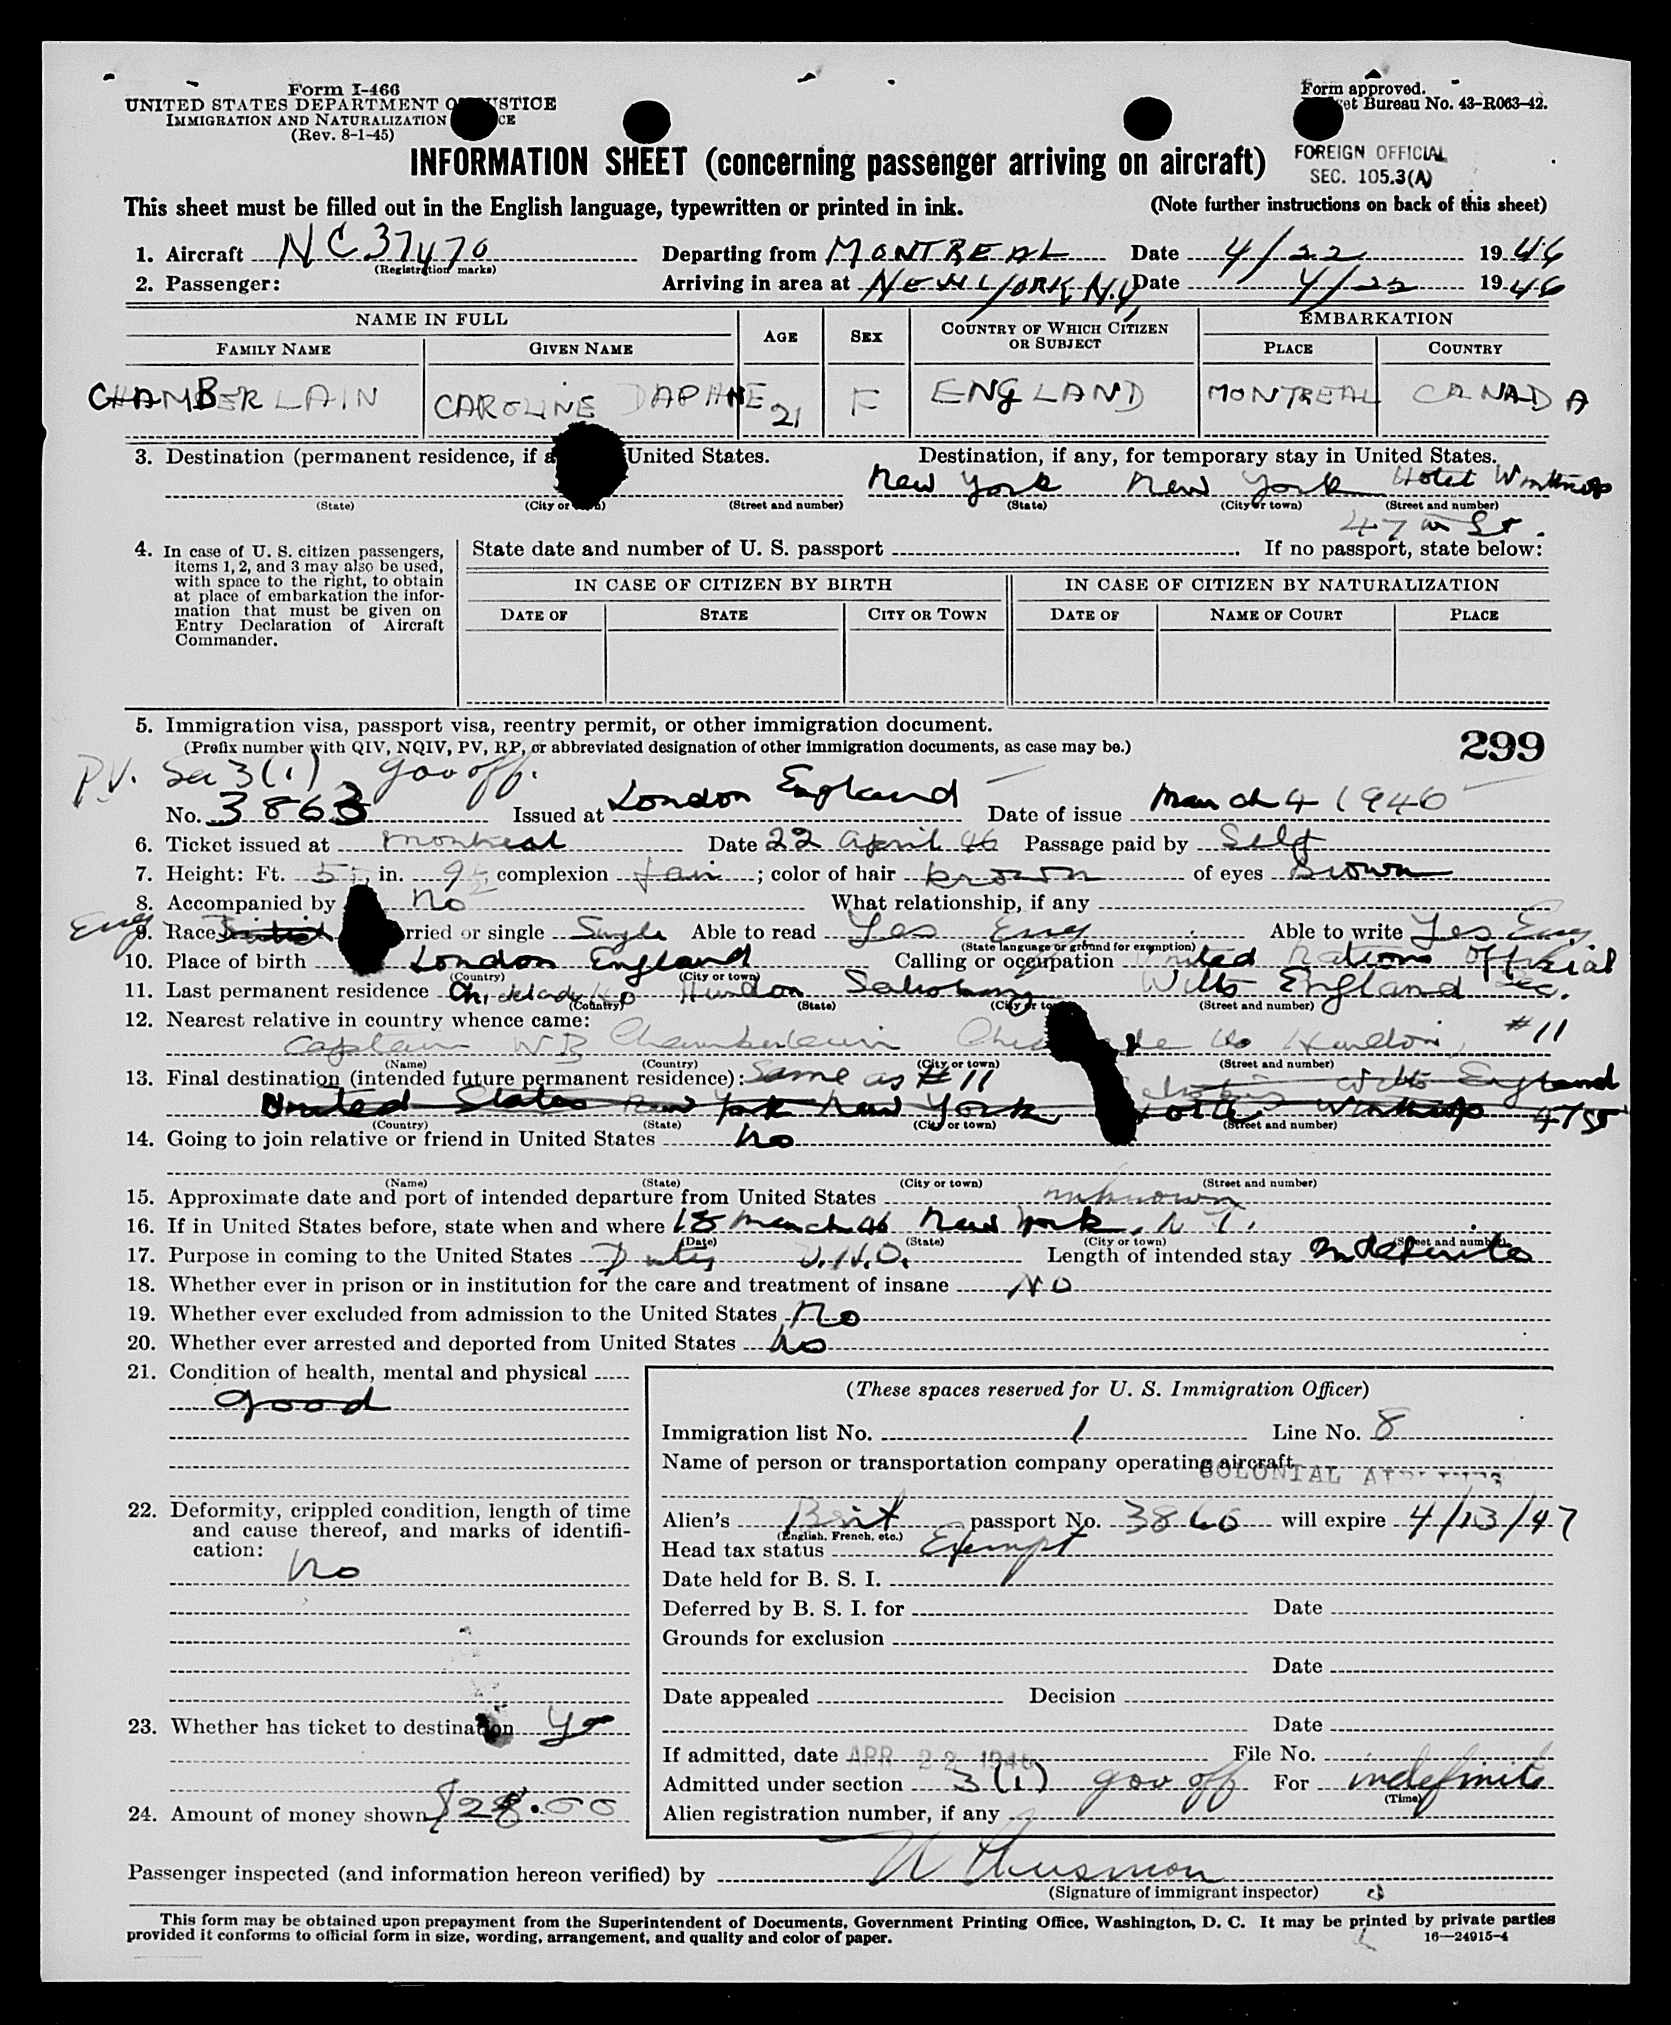 Form I-466
UNITED STATES DEPARTMENT OF JUSTICE
IMMIGRATION AND NATURALIZATION
(Rev. 8-1-45)
Form approved.
Bureau No. 43-R063-42.
INFORMATION SHEET (concerning passenger arriving on aircraft)
FOREIGN OFFICIAL
SEC. 105.3(A)
This sheet must be filled out in the English language, typewritten or printed in ink.
(Note further instructions on back of this sheet)
1. Aircraft NC37470 Departing from MONTREAL Date 4/22 1946
(Registration marks)
2. Passenger: Arriving in area at NEW YORK N.Y. Date 4/22 1946
NAME IN FULL AGE SEX COUNTRY OF WHICH CITIZEN OR SUBJECT EMBARKATION
FAMILY NAME GIVEN NAME PLACE COUNTRY
CHAMBERLAIN CAROLINE DAPHNE 21 F ENGLAND MONTREAL CANADA
3. Destination (permanent residence, if United States. Destination, if any, for temporary stay in United States.
New York New York Hotel Winthrop
(State) (City or town) (Street and number) (State) (City or town) (Street and number)
47 W St.
4. In case of U. S. citizen passengers, items 1, 2, and 3 may also be used, with space to the right, to obtain at place of embarkation the information that must be given on Entry Declaration of Aircraft Commander.
State date and number of U. S. passport If no passport, state below:
IN CASE OF CITIZEN BY BIRTH IN CASE OF CITIZEN BY NATURALIZATION
DATE OF STATE CITY OR TOWN DATE OF NAME OF COURT PLACE
5. Immigration visa, passport visa, reentry permit, or other immigration document.
(Prefix number with QIV, NQIV, PV, RP, or abbreviated designation of other immigration documents, as case may be.)
299
P.V. Sec 3(1) gov off.
No. 3863 Issued at London England Date of issue March 4 1946
6. Ticket issued at Montreal Date 22 April 46 Passage paid by Self
7. Height: Ft. 5, in. 9½, complexion fair; color of hair brown of eyes Brown
8. Accompanied by No What relationship, if any
Eng 9. Race British rried or single Single Able to read Yes Eng Able to write Yes Eng
(State language or ground for exemption)
10. Place of birth London England Calling or occupation United Nations Official
(Country) (City or town)
Sec.
11. Last permanent residence Hindon Salisbury Wilts England
(Country) (State) (City or town) (Street and number)
12. Nearest relative in country whence came:
Captain WB Chamberlain Ho Hindon, #11
(Name) (Country) (City or town) (Street and number)
13. Final destination (intended future permanent residence): Same as #11
Wilts England
United States New York New York Hotel Winthrop 47 St
(Country) (State) (City or town) (Street and number)
14. Going to join relative or friend in United States No
(Name) (State) (City or town) (Street and number)
15. Approximate date and port of intended departure from United States unknown
16. If in United States before, state when and where 18 March 46 New York, N.Y.
(Date) (State) (City or town) (Street and number)
17. Purpose in coming to the United States Duty U.N.O. Length of intended stay Indefinite
18. Whether ever in prison or in institution for the care and treatment of insane NO
19. Whether ever excluded from admission to the United States No
20. Whether ever arrested and deported from United States No
21. Condition of health, mental and physical
good
22. Deformity, crippled condition, length of time and cause thereof, and marks of identification:
No
23. Whether has ticket to destination Yes
24. Amount of money shown $28.00
(These spaces reserved for U. S. Immigration Officer)
Immigration list No. 1 Line No. 8
Name of person or transportation company operating aircraft
COLONIAL AIRLINES
Alien's Brit passport No. 3860 will expire 4/13/47
(English, French, etc.)
Head tax status Exempt
Date held for B. S. I.
Deferred by B. S. I. for Date
Grounds for exclusion
Date
Date appealed Decision
Date
If admitted, date APR 22 1946 File No.
Admitted under section 3(1) gov off For indefinite
(Time)
Alien registration number, if any
Passenger inspected (and information hereon verified) by
(Signature of immigrant inspector)
This form may be obtained upon prepayment from the Superintendent of Documents, Government Printing Office, Washington, D. C. It may be printed by private parties
provided it conforms to official form in size, wording, arrangement, and quality and color of paper.
16—24915-4